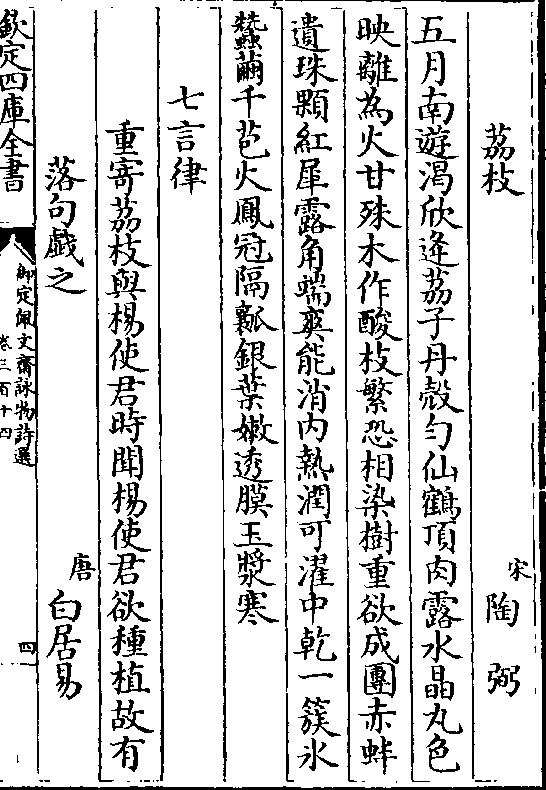 荔枝
宋 陶弼
五月南遊渴欣逢荔子丹殻勻仙鶴頂肉露水晶丸色
映離為火甘殊木作酸枝繁恐相染樹重欲成團赤蚌
遺珠顆紅犀露角端爽能消内熱潤可濯中乾一簇氷
蠶繭千苞火鳳冠隔瓤銀葉嫩透膜玉漿寒
七言律
重寄荔枝與楊使君時聞楊使君欲種植故有
落句戯之
唐 白居易
欽定四庫全書
御定佩文齋詠物詩選
卷三百十四
四